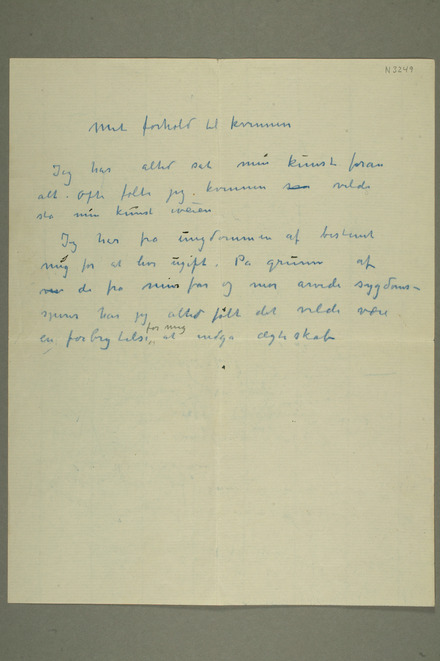 N 3249
Mit forhold til kvinnen
Jeg har altid sat min kunst foran
alt. Ofte følte jeg, kvinnen vilde
stå min kunst iveien
Jeg har fra ungdommen af bestemt
mig for at leve ugift. På grunn af
de fra min far og mor arvede sygdoms-
spirer har jeg altid følt det vilde være
en forbrytelse for mig at indgå ægteskab